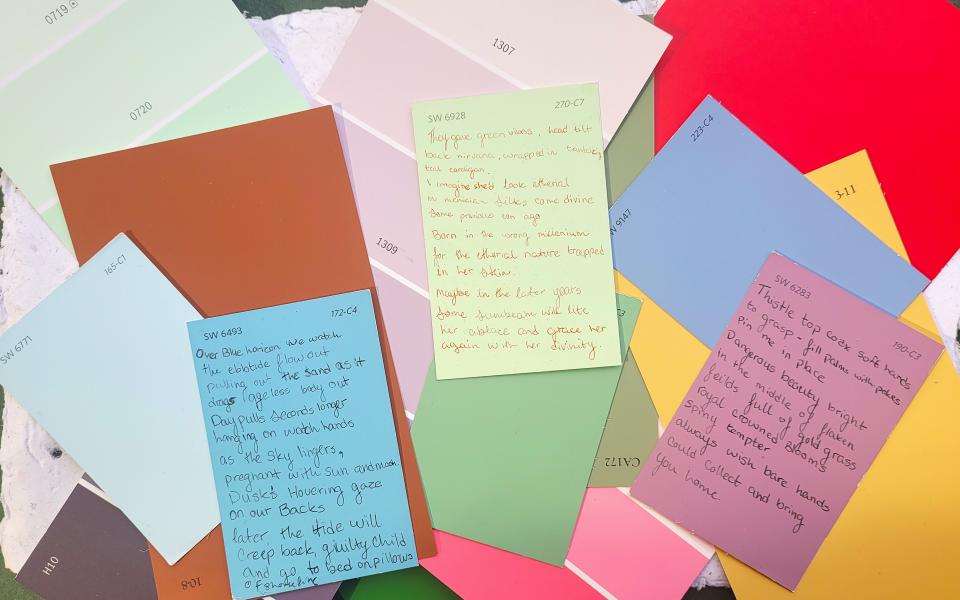 0719
0720
1307
1309
SW 6928 270-C7
They gave green vibes, head tilt
back nirvana, wrapped in
tail cardigan.
I imagine she'd look etherial
in silks come divine
Some previous eon ago
Born in the wrong millenium
for the etherial nature trapped
in her skin.
Maybe in the later years
Some sunbeam will like
her and grace her
again with her divinity.
223-C4
W 9147
3-11
165-C1
SW 6771
SW 6493 172-C4
Over Blue horizon we watch
the ebbtide flow out
pulling out the sand as it
drags ageless body out
Day pulls seconds longer
hanging on watch hands
as the sky lingers,
pregnant with sun and moon.
Dusks Hovering gaze
on our Backs
later, the tide will
creep back, guilty child
and go to bed on pillows
SW 6283 190-C3
Thistle top coax soft hands
to grasp - fill palms with pokes
Pin me in place
Dangerous beauty bright
in the middle of flaxen
feilds full of gold grass
royal crowned Blooms
spiny tempter
always wish bare hands
could collect and bring
you home
C3
CA172
H10
10-8